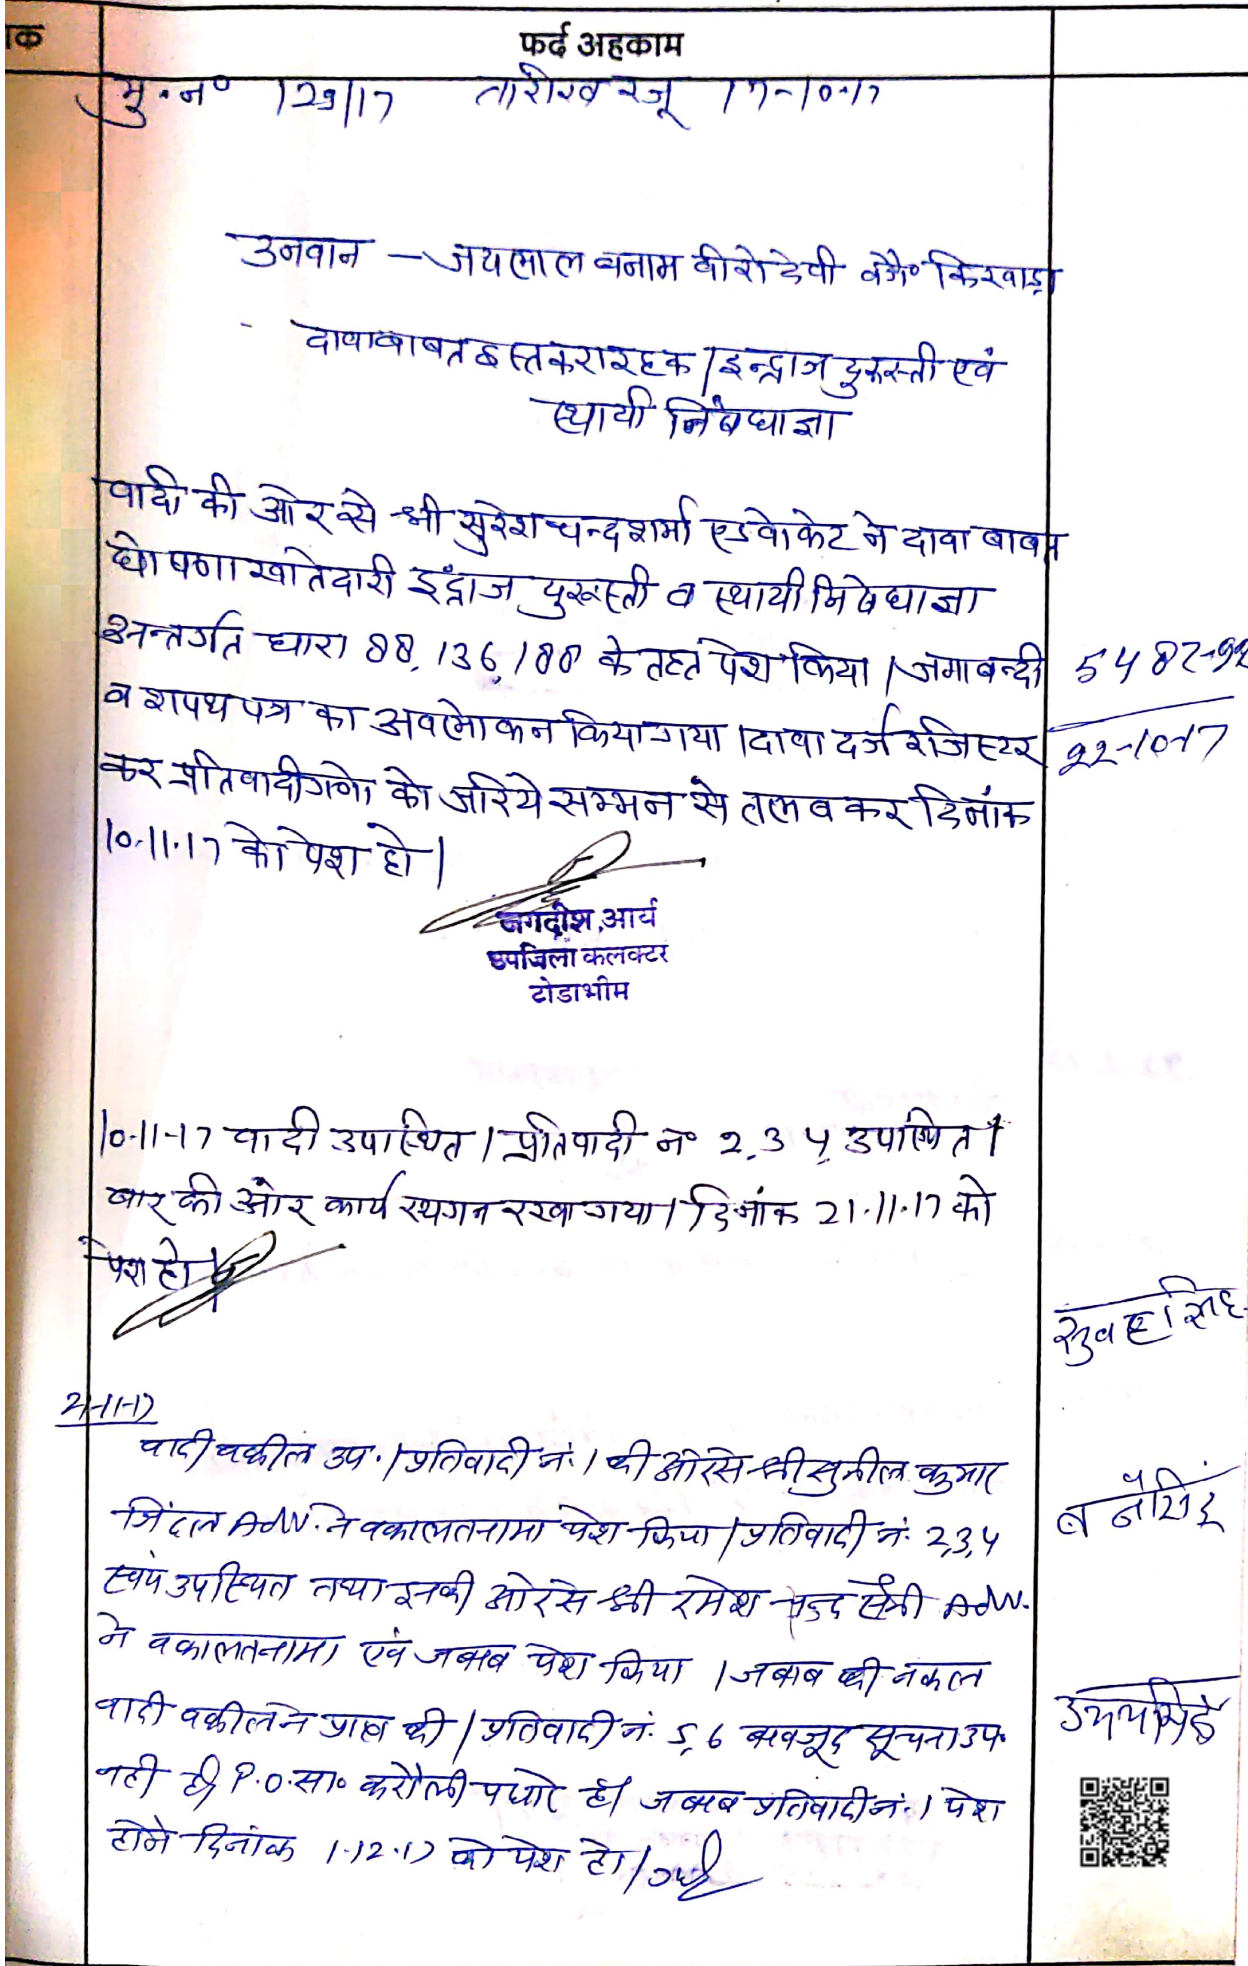 क
फर्द अहकाम
मु.न० 129/17 तारीख रजू 17-10-17
उनवान – जयलाल बनाम वीरो देवी वगै० किरवाड़ा
दावा बाबत इस्तकरार हक / इन्द्राज दुरूस्ती एवं
स्थायी निषेधाज्ञा
वादी की ओर से श्री सुरेश चन्द शर्मा एडवोकेट ने दावा बाबत
घोषणा खातेदारी इंद्राज दुरूस्ती व स्थायी निषेधाज्ञा
अन्तर्गत धारा 88, 136, 188 के तहत पेश किया । जमाबन्दी
5487-92
व शपथ पत्र का अवलोकन किया गया । दावा दर्ज रजिस्टर
22-10-17
कर प्रतिवादीगणो को जरिये सम्मन से तलब कर दिनांक
10.11.17 को पेश हो ।
जगदीश आर्य
उपजिला कलक्टर
टोडाभीम
10-11-17 वादी उपास्थित । प्रतिवादी न० 2, 3 4, उपास्थित ।
बार की ओर कार्य स्थगन रखा गया । दिनांक 21.11.17 को
पेश हो ।
21-11-17
वादी वकील उप. । प्रतिवादी नं. 1 की ओर से श्री सुनील कुमार
जिंदल Adv. ने वकालतनामा पेश किया । प्रतिवादी नं. 2,3,4
बनैसिंह
स्वंय उपस्थित तथा इनकी ओर से श्री रमेश चन्द सैनी Adv.
ने वकालतनामा एवं जबाब पेश किया । जबाब की नकल
वादी वकील ने प्राप्त की । प्रतिवादी नं. 5, 6 बावजूद सूचना उप.
नही है, P.O. सा० करौली पधारे है। जबाब प्रतिवादी नं. 1 पेश
होने दिनांक 1.12.17 को पेश हो ।